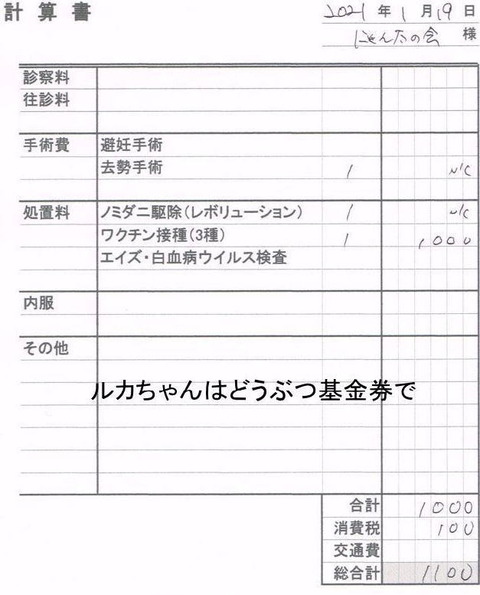 計算書
2021 年 1 月 19 日
にゃん太の会 様
診察料
往診料
手術費 避妊手術
去勢手術 1 N/C
処置料 ノミダニ駆除(レボリューション) 1 N/C
ワクチン接種(3種) 1 1000
エイズ・白血病ウイルス検査
内服
その他
ルカちゃんはどうぶつ基金券で
合計 1000
消費税 100
交通費
総合計 1100